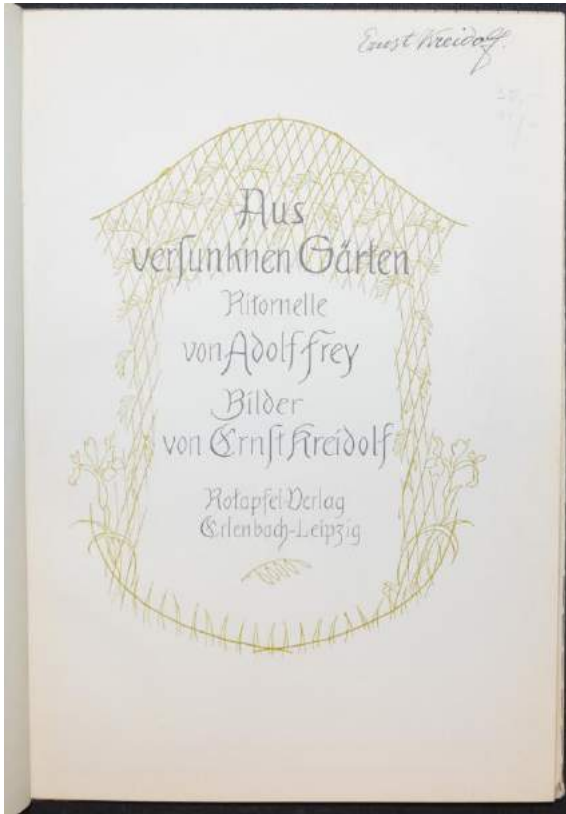 Ernst Kreidolf.
Aus
versunknen Gärten
Ritornelle
von Adolf Frey
Bilder
von Ernst Kreidolf
Rotapfel-Verlag
Erlenbach-Leipzig